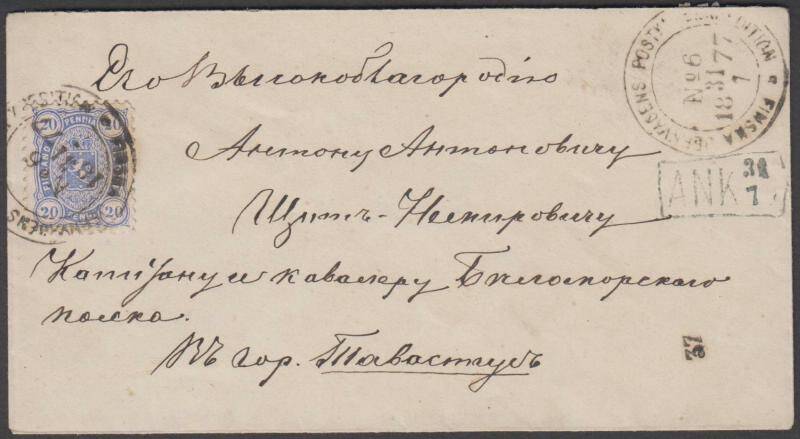 Его Высокоблагородію
Антону Антоновичу
Щитъ-Немировичу
Капитану и кавалеру Беломорскаго
полка.
Въ гор. Тавастгусъ
FINSKA JERNVAGENS POSTKUPEEXPEDITION
No 6
31
18 77
7
ANK 31
7
20 PENNIA 20
FINLAND
20 20
77